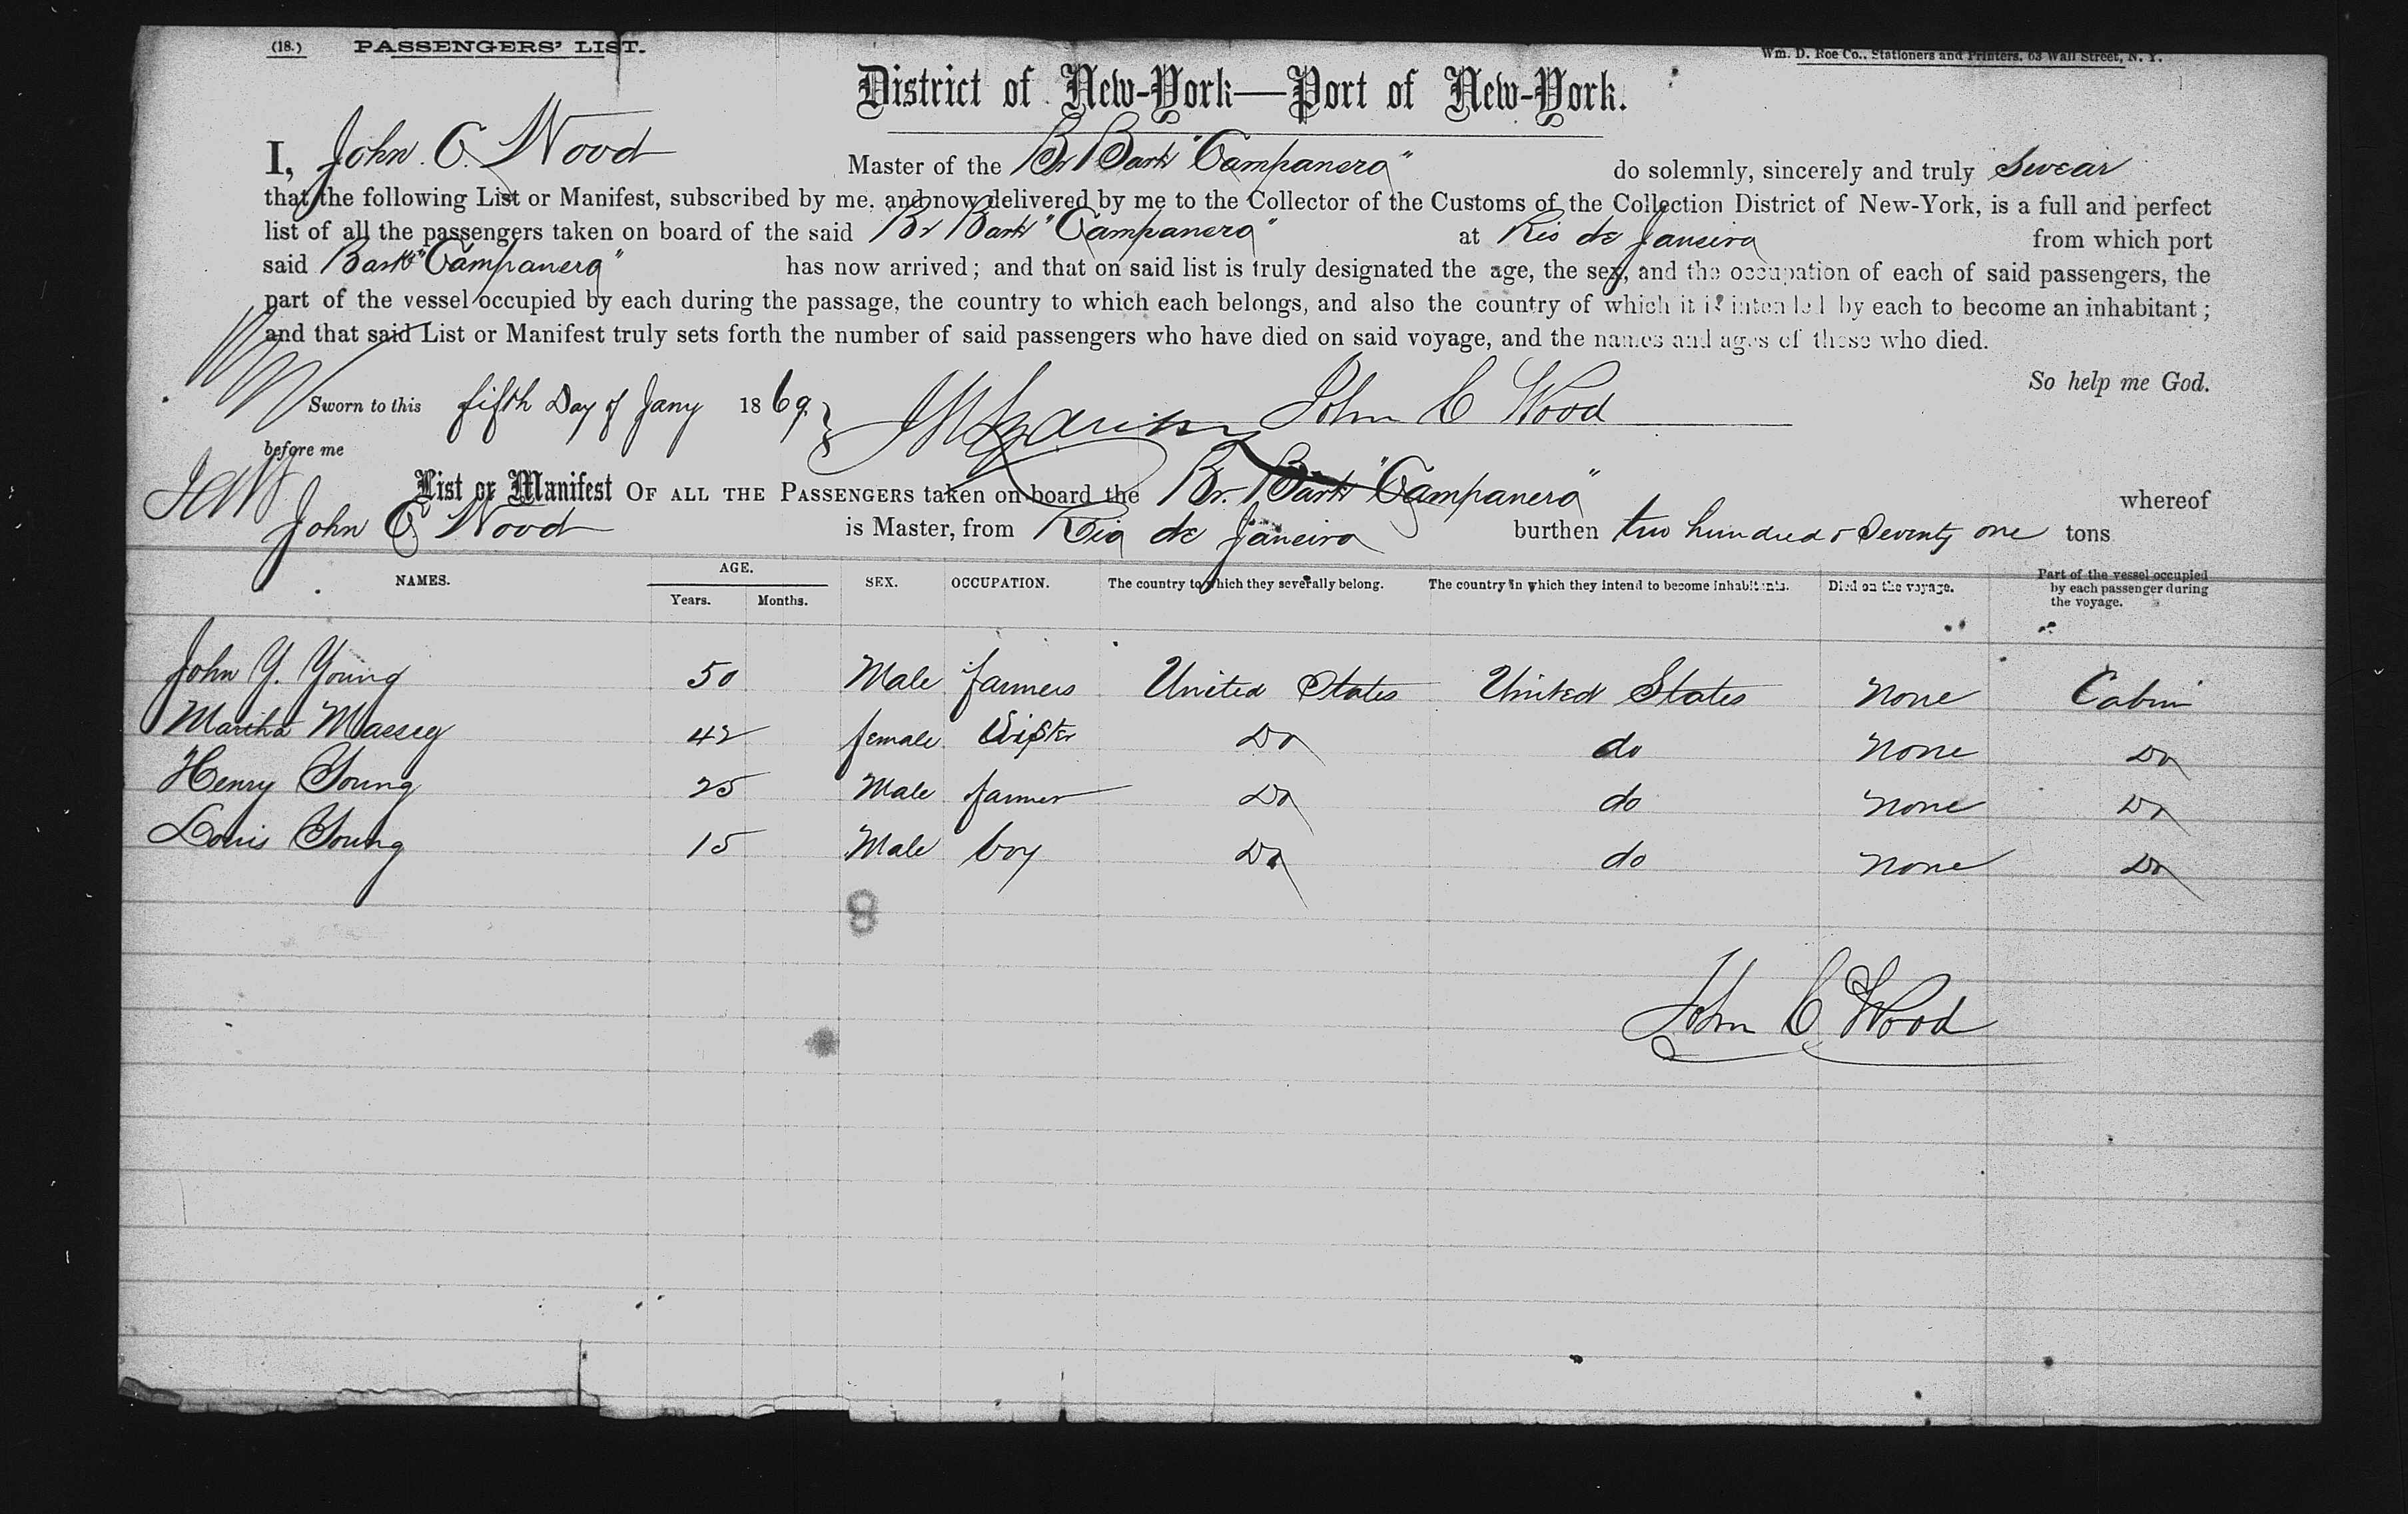 (18.) PASSENGERS' LIST.
Wm. D. Roe Co., Stationers and Printers, 63 Wall Street, N. Y.
District of New-York—Port of New-York.
I, John. C. Wood Master of the Br Bark "Campanero" do solemnly, sincerely and truly Swear
that the following List or Manifest, subscribed by me, and now delivered by me to the Collector of the Customs of the Collection District of New-York, is a full and perfect
list of all the passengers taken on board of the said Br Bark "Campanero" at Rio de Janeiro from which port
said Bark "Campanero" has now arrived; and that on said list is truly designated the age, the sex, and the occupation of each of said passengers, the
part of the vessel occupied by each during the passage, the country to which each belongs, and also the country of which it is intended by each to become an inhabitant;
and that said List or Manifest truly sets forth the number of said passengers who have died on said voyage, and the names and ages of those who died.
So help me God.
Sworn to this fifth Day of Jany 1869 John C Wood
before me
List or Manifest OF ALL THE PASSENGERS taken on board the Br. Bark "Campanero" whereof
John C Wood is Master, from Rio de Janeiro burthen two hundred & Seventy one tons
NAMES. AGE. SEX. OCCUPATION. The country to which they severally belong. The country in which they intend to become inhabitants. Died on the voyage. Part of the vessel occupied by each passenger during the voyage.
Years. Months.
John Y. Young 50 Male farmers United States United States None Cabin
Martha Massey 42 female Sister Do do None Do
Henry Young 25 Male farmer Do do None Do
Louis Young 15 Male boy Do do None Do
8
John C Wood